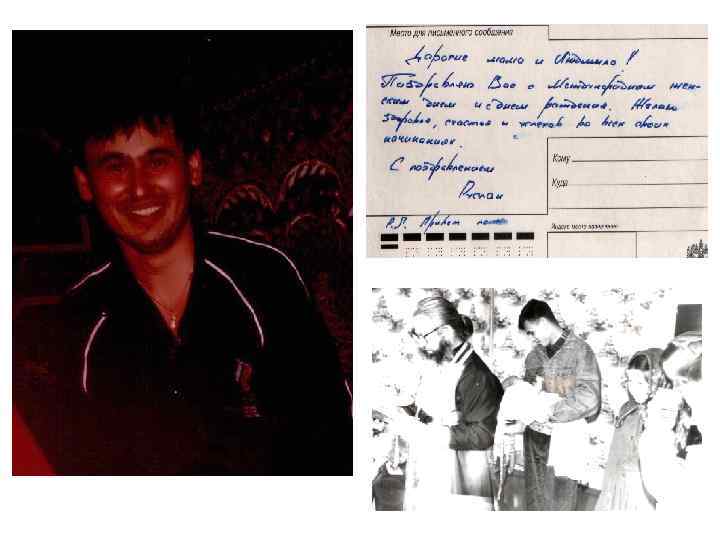 Место для письменного сообщения
Дорогие мама и Людмила!
Поздравляю Вас с Международным жен-
ским днем и с днем рождения. Желаю
здоровья, счастья и успехов во всех своих
начинаниях.
С поздравлением
Руслан
P.S. Привет
Кому
Куда
Индекс места назначения